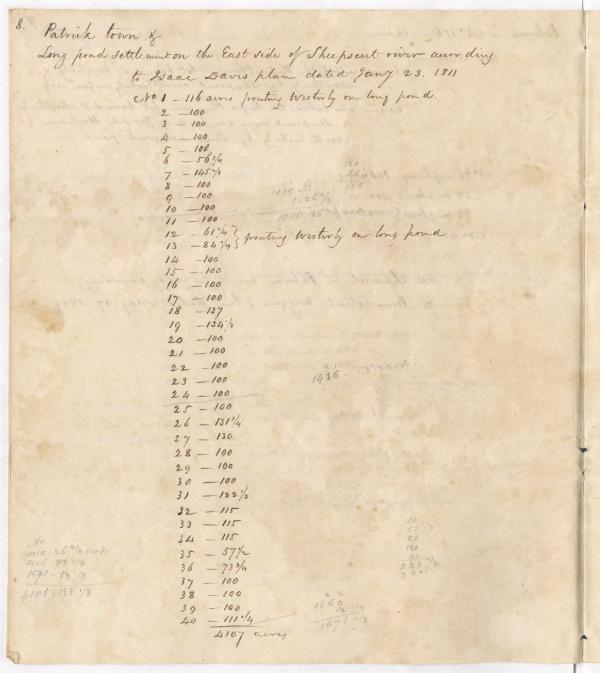 8.
Patrick town &
Long pond settlement on the East side of Sheepscut river according
to Isaac Davis plan dated Jany 23. 1811
No 1 - 116 acres fronting Westerly on long pond.
2 - 100
3 - 100
4 - 100
5 - 100
6 - 56 3/4
7 - 145 1/2
8 - 100
9 - 100
10 - 100
11 - 100
12 - 61 1/4
13 - 84 1/4 } fronting Westerly on long pond
14 - 100
15 - 100
16 - 100
17 - 100
18 - 137
19 - 134 1/2
20 - 100
21 - 100
22 - 100
23 - 100
1436
24 - 100
25 - 100
26 - 131 1/4
27 - 130
28 - 100
29 - 100
30 - 100
31 - 122 1/2
32 - 115
33 - 115
34 - 115
35 - 57 1/2
36 - 73 3/4
37 - 100
38 - 100
39 - 100
40 - 111 1/4
4107 acres